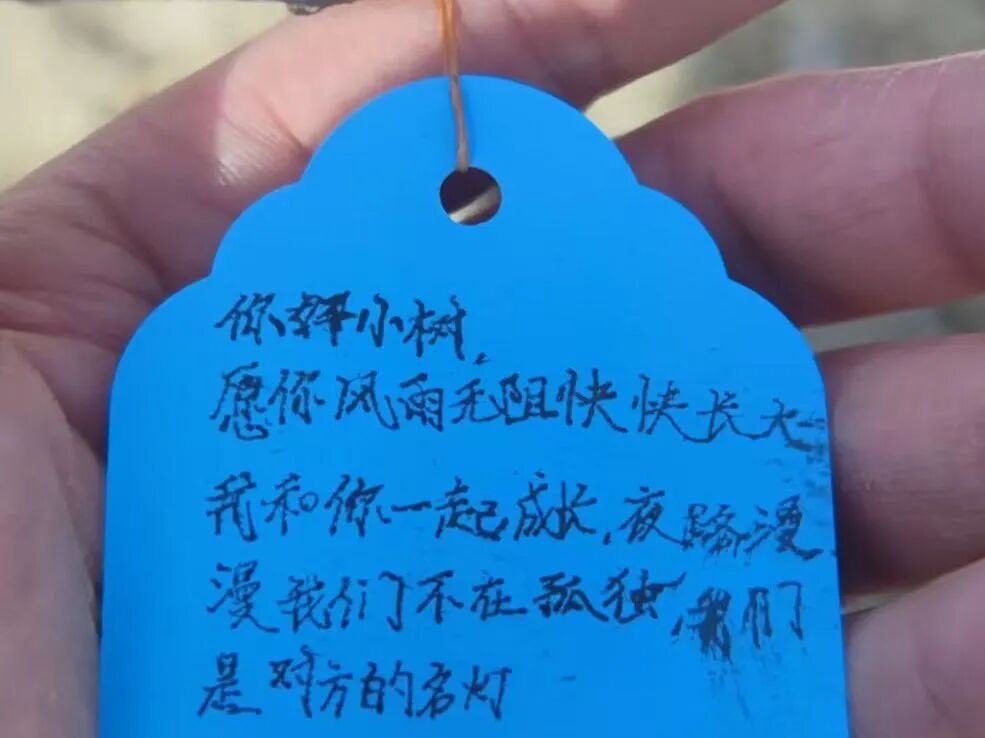 你好小树,
愿你风雨无阻快快长大
我和你一起成长,夜路漫
漫我们不在孤独,我们
是对方的名灯